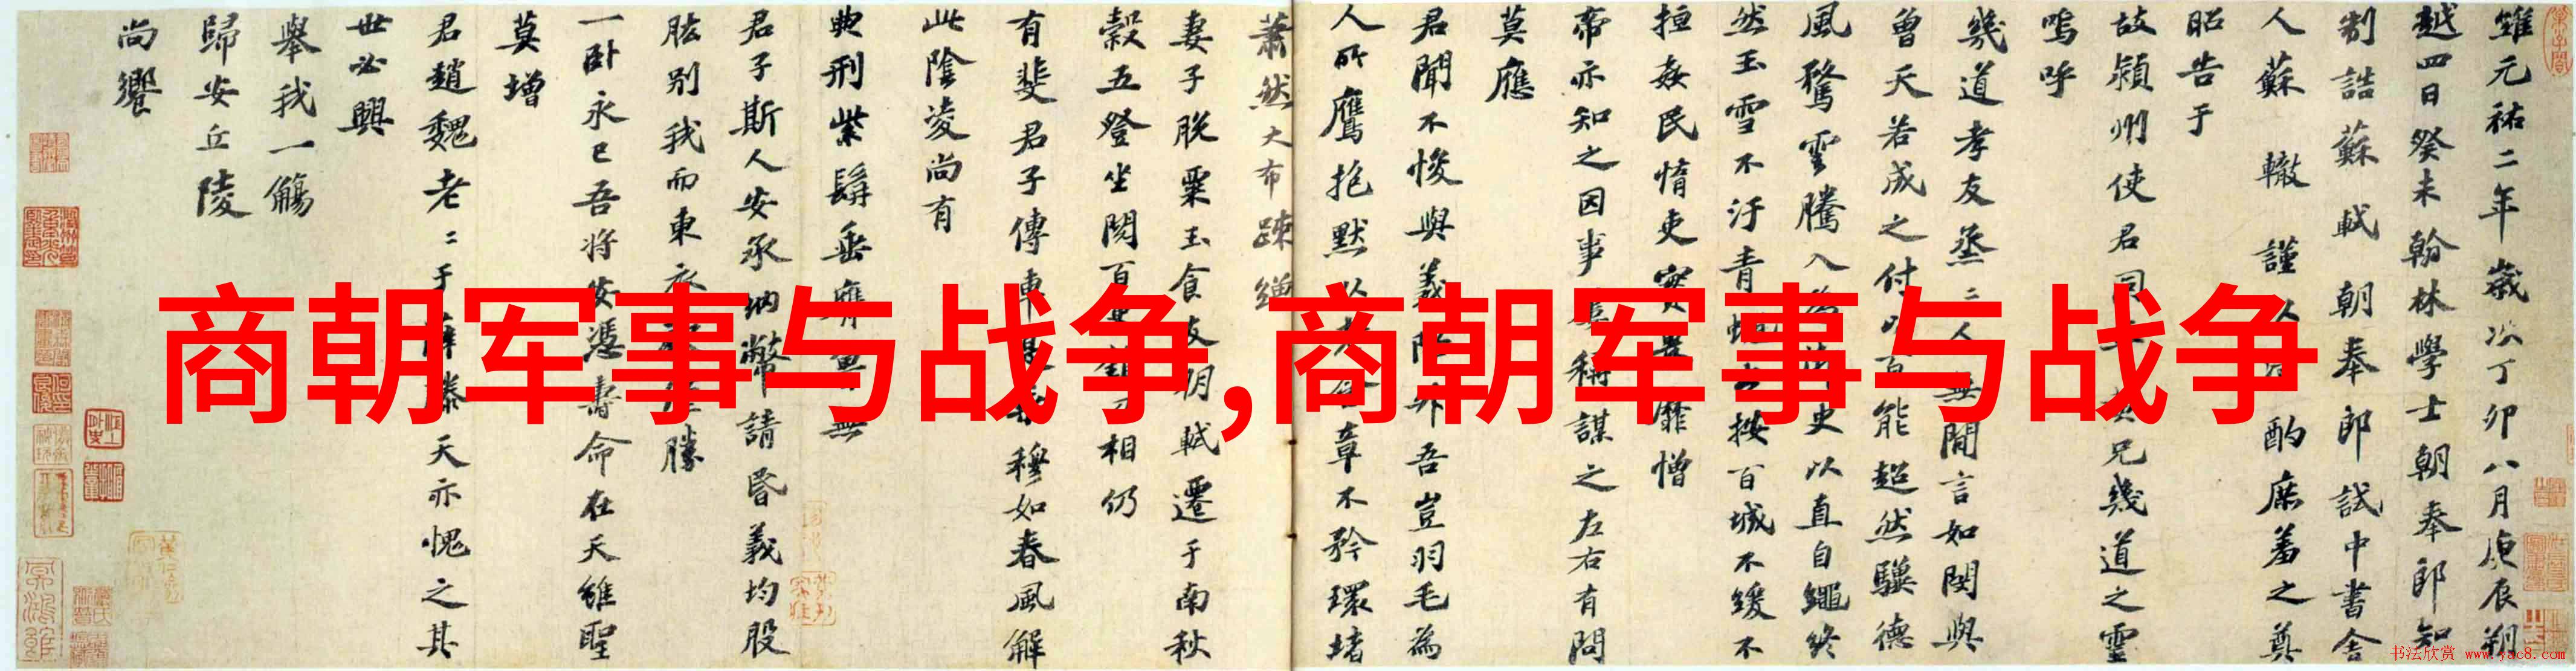 商朝军事与战争,商朝军事与战争
維元祐二年歲次丁卯八月庚辰朔
越四日癸未翰林學士朝奉郎知
制誥蘇軾朝奉郎試中書舍
人蘇轍謹以酌庶羞之奠
昭告于
故潁州使君同兄幾道之靈
嗚呼
幾道孝友烝二人無間言如閔與
曾天若成之付以百能超然驥德
風騖雲騰入史以直自繩終
然玉雪不汙青按百城不緩不
擅姦民惰吏實靡憎
帝亦知之因事稱謀之左右有問
莫應
君聞不悛與義降吾豈羽毛為
人所鷹抱默以老章不矜環堵
蕭然大布疎繒
妻子脫粟玉食友朋軾遷于南秋
穀五登坐閱百相仍
有斐君子傳車穆如春風解
此陰凌尚有
典刑紫髯垂膺無
君子斯人安承納幣請昏義均股
肱別我而東衣勝
一卧永已吾將安憑壽命在天雖聖
莫增
君趙魏老二于薛滕天亦愧之其
世必興
舉我一觴
歸安丘陵
尚饗
书法欣赏 www.yac8.com